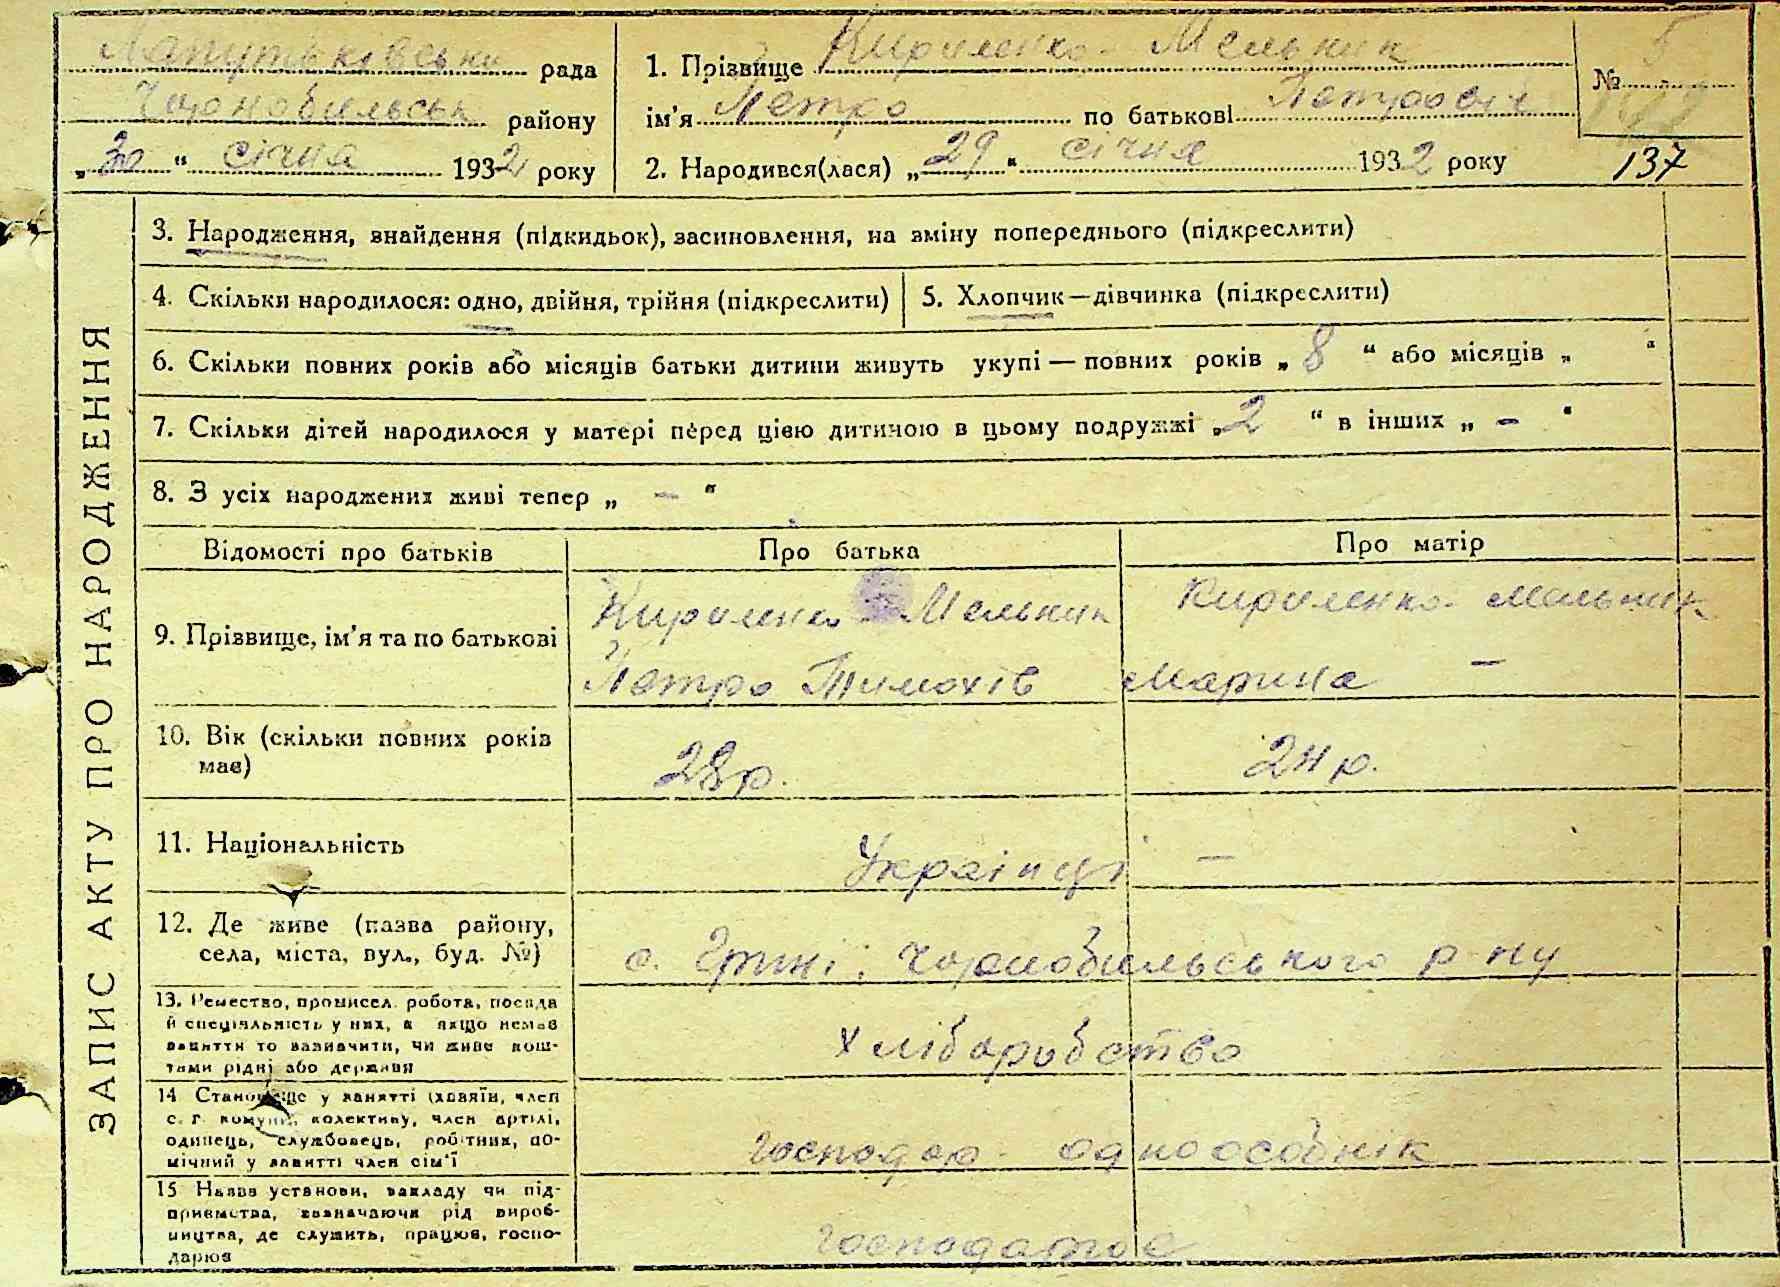 Лапутьківська рада
Чорнобильськ району
„30“ січня 1932 року
1. Прізвище Кириленко-Мельник
ім’я Петро по батькові Петрович
2. Народився(лася) „29“ січня 1932 року
№ 5
137
ЗАПИС АКТУ ПРО НАРОДЖЕННЯ
3. Народження, знайдення (підкидьок), засиновлення, на зміну попереднього (підкреслити)
4. Скільки народилося: одно, двійня, трійня (підкреслити)
5. Хлопчик—дівчинка (підкреслити)
6. Скільки повних років або місяців батьки дитини живуть укупі — повних років „8“ або місяців „ “
7. Скільки дітей народилося у матері перед цією дитиною в цьому подружжі „2“ в інших „-“
8. З усіх народжених живі тепер „-“
Відомості про батьків Про батька Про матір
9. Прізвище, ім’я та по батькові
Кириленко-Мельник
Петро Тимохів
Кириленко-Мельник
Марина —
10. Вік (скільки повних років має)
28 р.
24 р.
11. Національність
Українці —
12. Де живе (назва району,
села, міста, вул., буд. №)
с. Чорнобильського р-ну
13. Ремество, промисел, робота, посада
й спеціяльність у них, а якщо немає
заняття то зазначити, чи живе кош-
тами рідні або держави
Хліборобство
14 Становище у занятті (хазяїн, член
с. г. комуни, колективу, член артілі,
одинець, службовець, робітник, по-
мічний у занятті член сім’ї
господар - одноособнік
15 Назва установи, закладу чи під-
приємства, зазначаючи рід вироб-
ництва, де служить, працює, госпо-
дарює